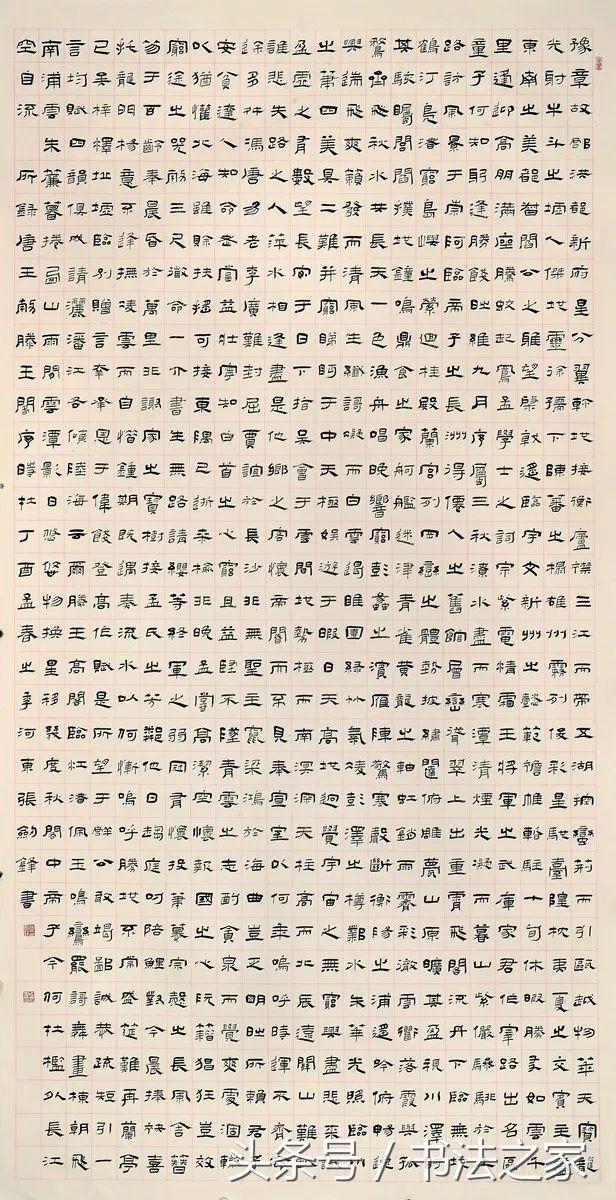 豫章故郡洪都新府星分翼軫地接衡廬襟三江而帶五湖控蠻荊而引甌越物華天寶龍
光射牛斗之墟人傑地靈徐孺下陳蕃之榻雄州霧列俊彩星馳臺隍枕夷夏之交賓主盡
東南之美都督閻公之雅望棨戟遙臨宇文新州之懿範襜帷暫駐十旬休暇勝友如雲千
里逢迎高朋滿座騰蛟起鳳孟學士之詞宗紫電清霜王將軍之武庫家君作宰路出名區
童子何知躬逢勝餞時維九月序屬三秋潦水盡而寒潭清煙光凝而暮山紫儼驂騑於上
路訪風景於崇阿臨帝子之長洲得仙人之舊館層巒聳翠上出重霄飛閣流丹下臨無地
鶴汀鳧渚窮島嶼之縈迴桂殿蘭宮列岡巒之體勢披繡闥俯雕甍山原曠其盈視川澤紆
其駭矚閭閻撲地鐘鳴鼎食之家舸艦迷津青雀黃龍之軸虹銷雨霽彩徹雲衢落霞與孤
鶩齊飛秋水共長天一色漁舟唱晚響窮彭蠡之濱雁陣驚寒聲斷衡陽之浦遙吟俯暢逸
興遄飛爽籟發而清風生纖歌凝而白雲遏睢園綠竹氣凌彭澤之樽鄴水朱華光照臨川
之筆四美具二難并窮睇眄於中天極娛遊於暇日天高地迥覺宇宙之無窮興盡悲來識
盈虛之有數望長安於日下指吳會於雲間地勢極而南溟深天柱高而北辰遠關山難越
誰悲失路之人萍水相逢盡是他鄉之客懷帝閽而不見奉宣室以何年嗚呼時運不齊命
途多舛馮唐易老李廣難封屈賈誼於長沙非無聖主竄梁鴻於海曲豈乏明時所賴君子
安貧達人知命老當益壯寧知白首之心窮且益堅不墜青雲之志酌貪泉而覺爽處涸轍
以猶懽北海雖賒扶搖可接東隅已逝桑榆非晚孟嘗高潔空懷報國之心阮籍猖狂豈效
窮途之哭勃三尺微命一介書生無路請纓等終軍之弱冠有懷投筆慕宗愨之長風舍簪
笏於百齡奉晨昏於萬里非謝家之寶樹接孟氏之芳鄰他日趨庭叨陪鯉對今晨捧袂喜
托龍門楊意不逢撫凌雲而自惜鍾期既遇奏流水以何慚嗚呼勝地不常盛筵難再蘭亭
已矣梓澤丘墟臨別贈言幸承恩於偉餞登高作賦是所望於群公敢竭鄙誠恭疏短引一
言均賦四韻俱成請灑潘江各傾陸海云爾滕王高閣臨江渚佩玉鳴鸞罷歌舞畫棟朝飛
南浦雲朱簾暮捲西山雨閒雲潭影日悠悠物換星移幾度秋閣中帝子今何在檻外長江
空自流 所錄唐王勃滕王閣序時在丁酉孟春之季河東張劍鋒書
头条号 / 书法之家